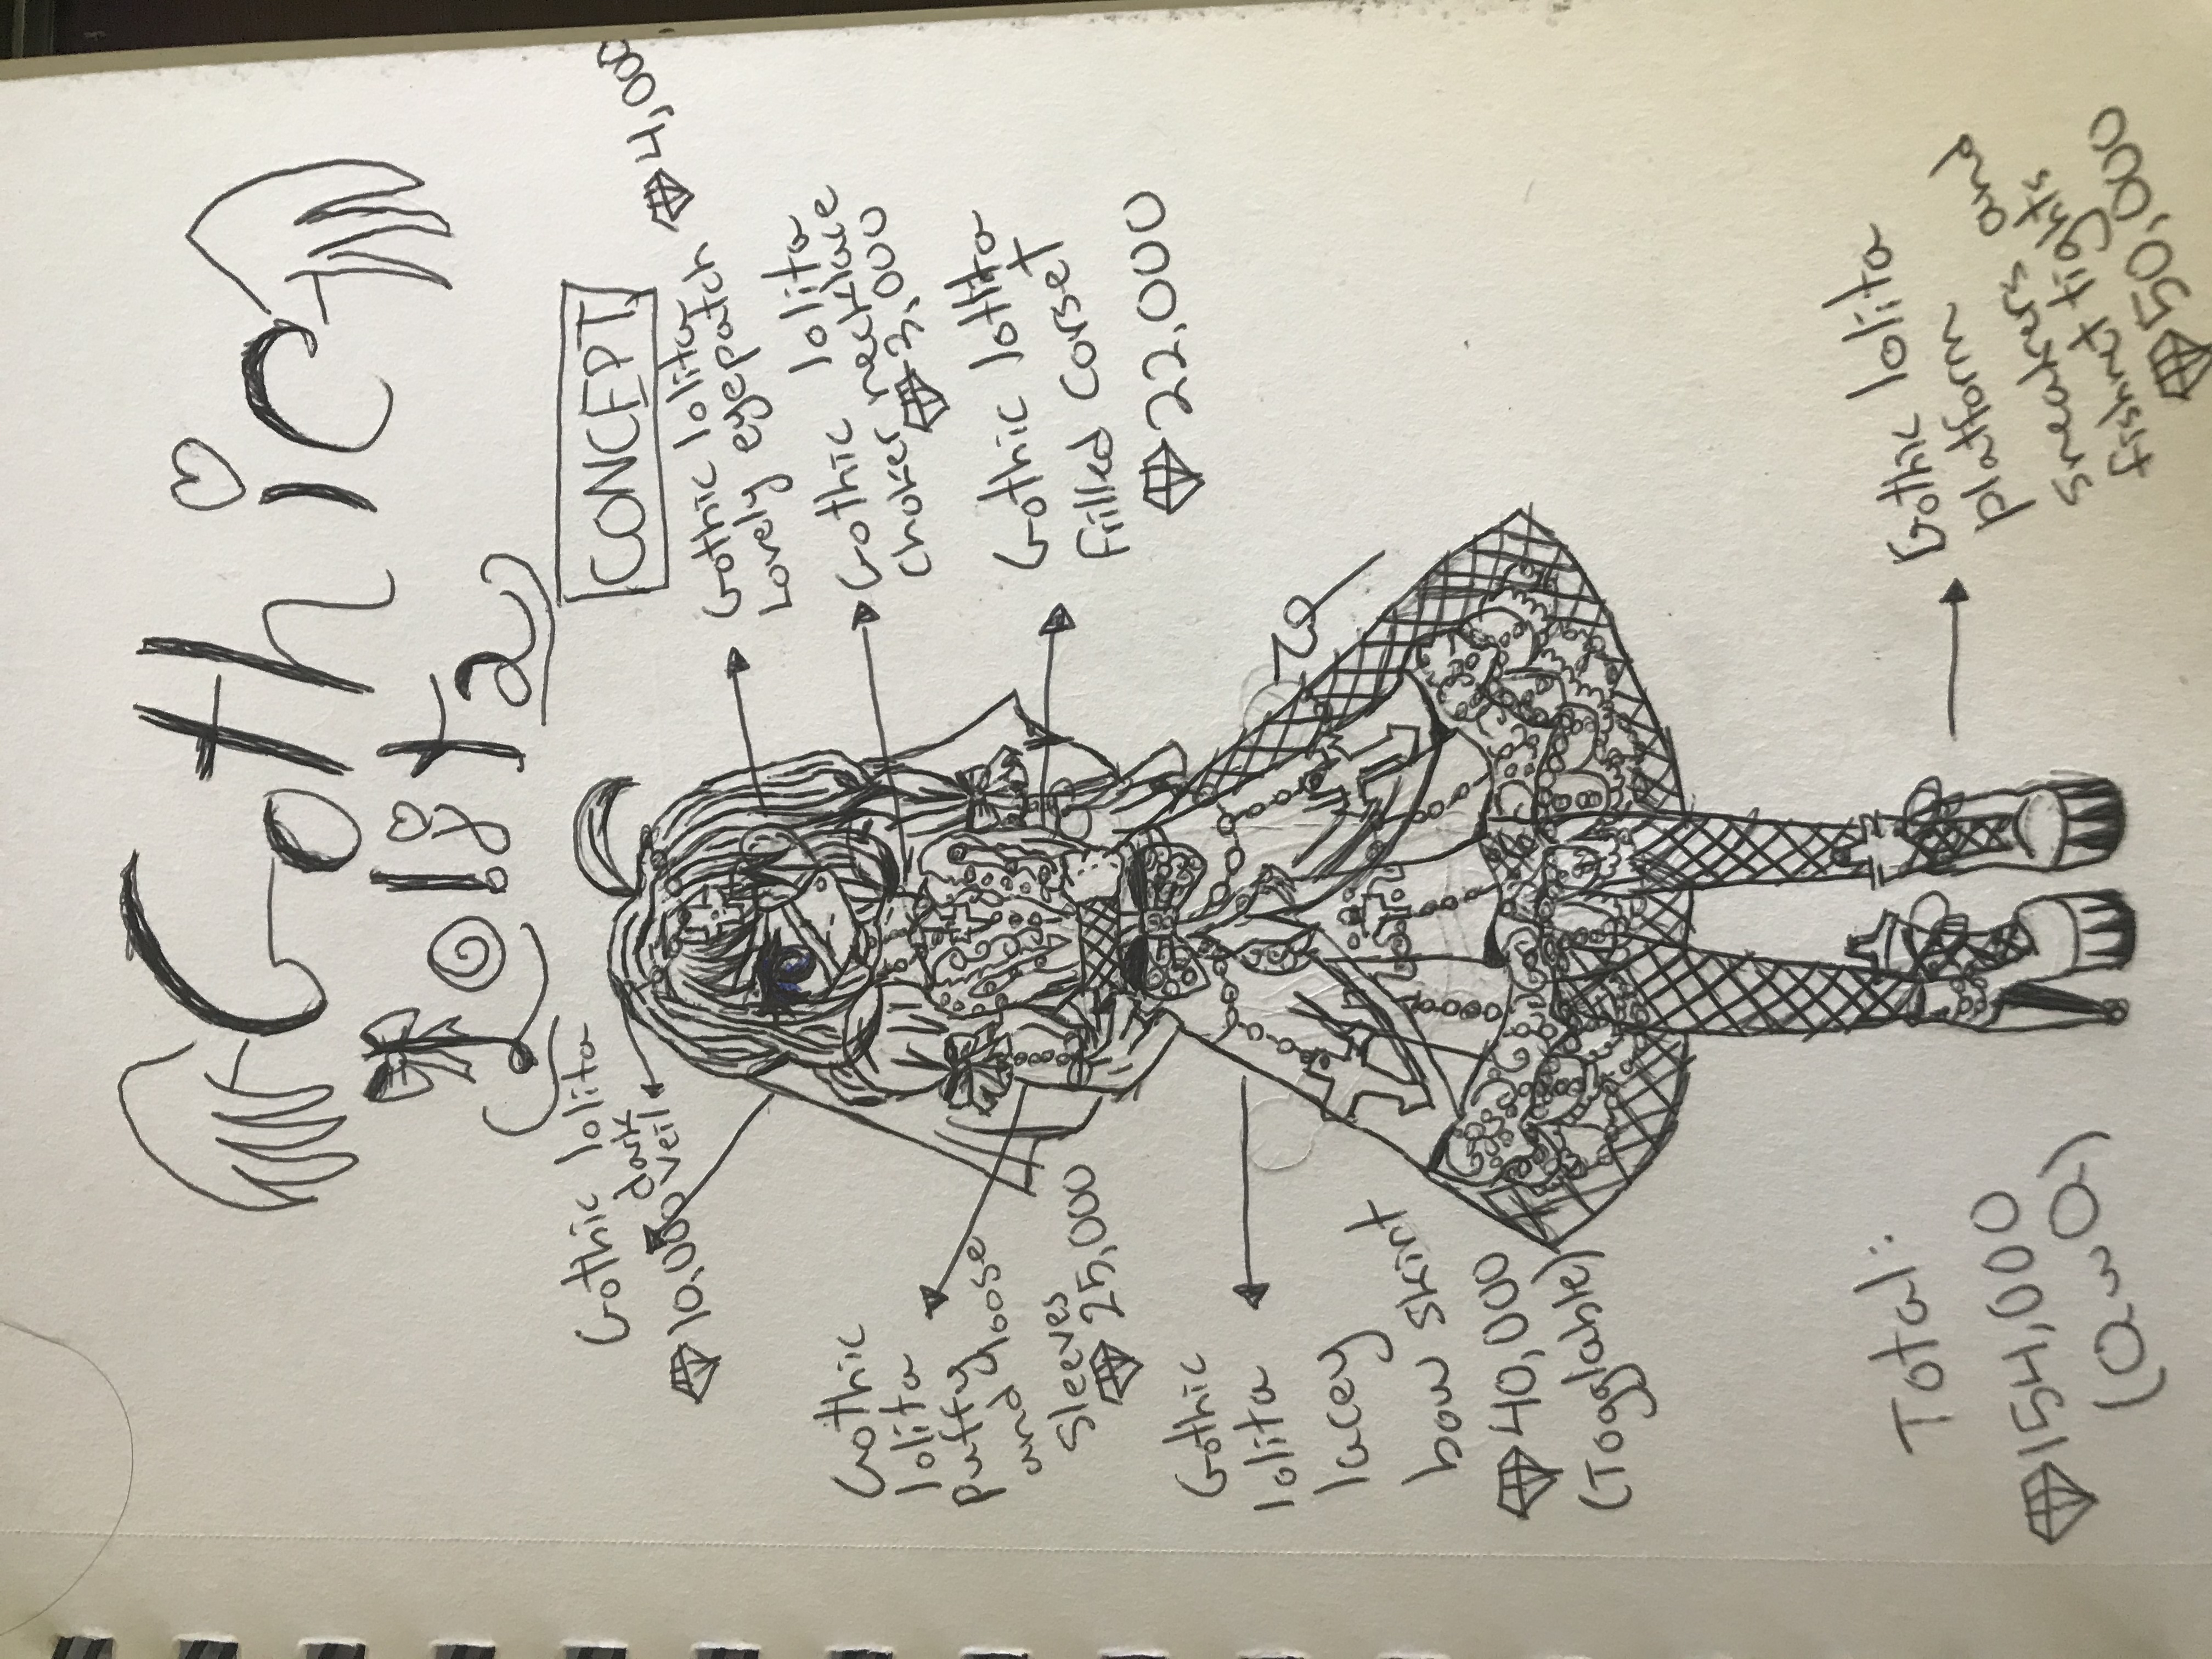 Gothic
lolita
CONCEPT
Gothic lolita
Lovely eyepatch
4,000
Gothic lolita
choker necklace
3,000
Gothic lolita
frilled corset
22,000
Gothic lolita
platform
sneakers and
fishnet tights
50,000
Gothic lolita
dark
veil
10,000
Gothic
lolita
puffy
and loose
sleeves
25,000
Gothic
lolita
lacey
bow skirt
40,000
(Togglable)
Total:
154,000
(OwO)